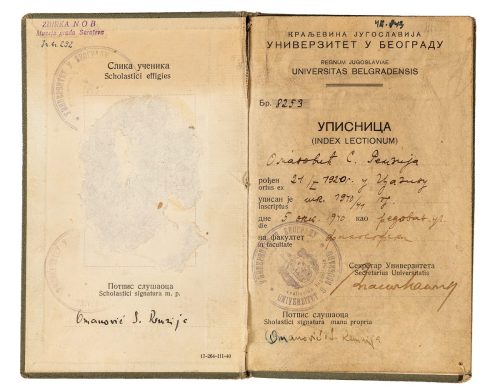 ZBIRKA N O B
Muzeja grada Sarajeva
Слика ученика
Scholastici effigies
Потпис слушаоца
Scholastici signatura m. p.
Omanović S. Remzija
13-264-III-40
КРАЉЕВИНА ЈУГОСЛАВИЈА
УНИВЕРЗИТЕТ У БЕОГРАДУ
REGNUM JUGOSLAVIAE
UNIVERSITAS BELGRADENSIS
Бр. 8253
УПИСНИЦА
(INDEX LECTIONUM)
Омановић С. Ремзија
рођен 21 1920 г. у
ortus ex
уписан је шк. 1940/41 г.
inscriptus
дне 5 окт. 1940 као редован
die
на факултет
in facultate
УНИВЕРЗИТЕТ У БЕОГРАДУ
Секретар Универзитета
Secretarius Universitatis
Потпис слушаоца
Sholastici signatura manu propria
Omanović S. Remzija